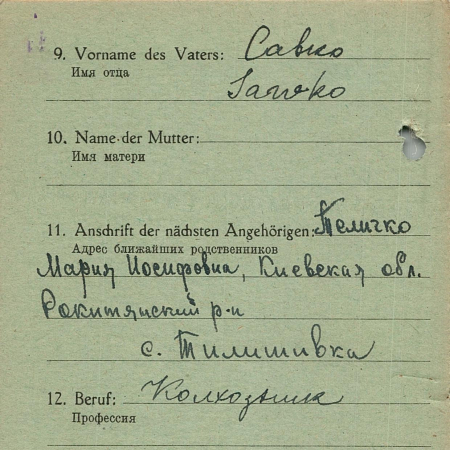 9. Vorname des Vaters: Савко
Имя отца
Sawko
10. Name der Mutter:
Имя матери
11. Anschrift der nächsten Angehörigen: Теличко
Адрес ближайших родственников
Мария Иосифовна, Киевская обл.
Рокитянский р-н
с. Телешивка
12. Beruf: Колхозник
Профессия